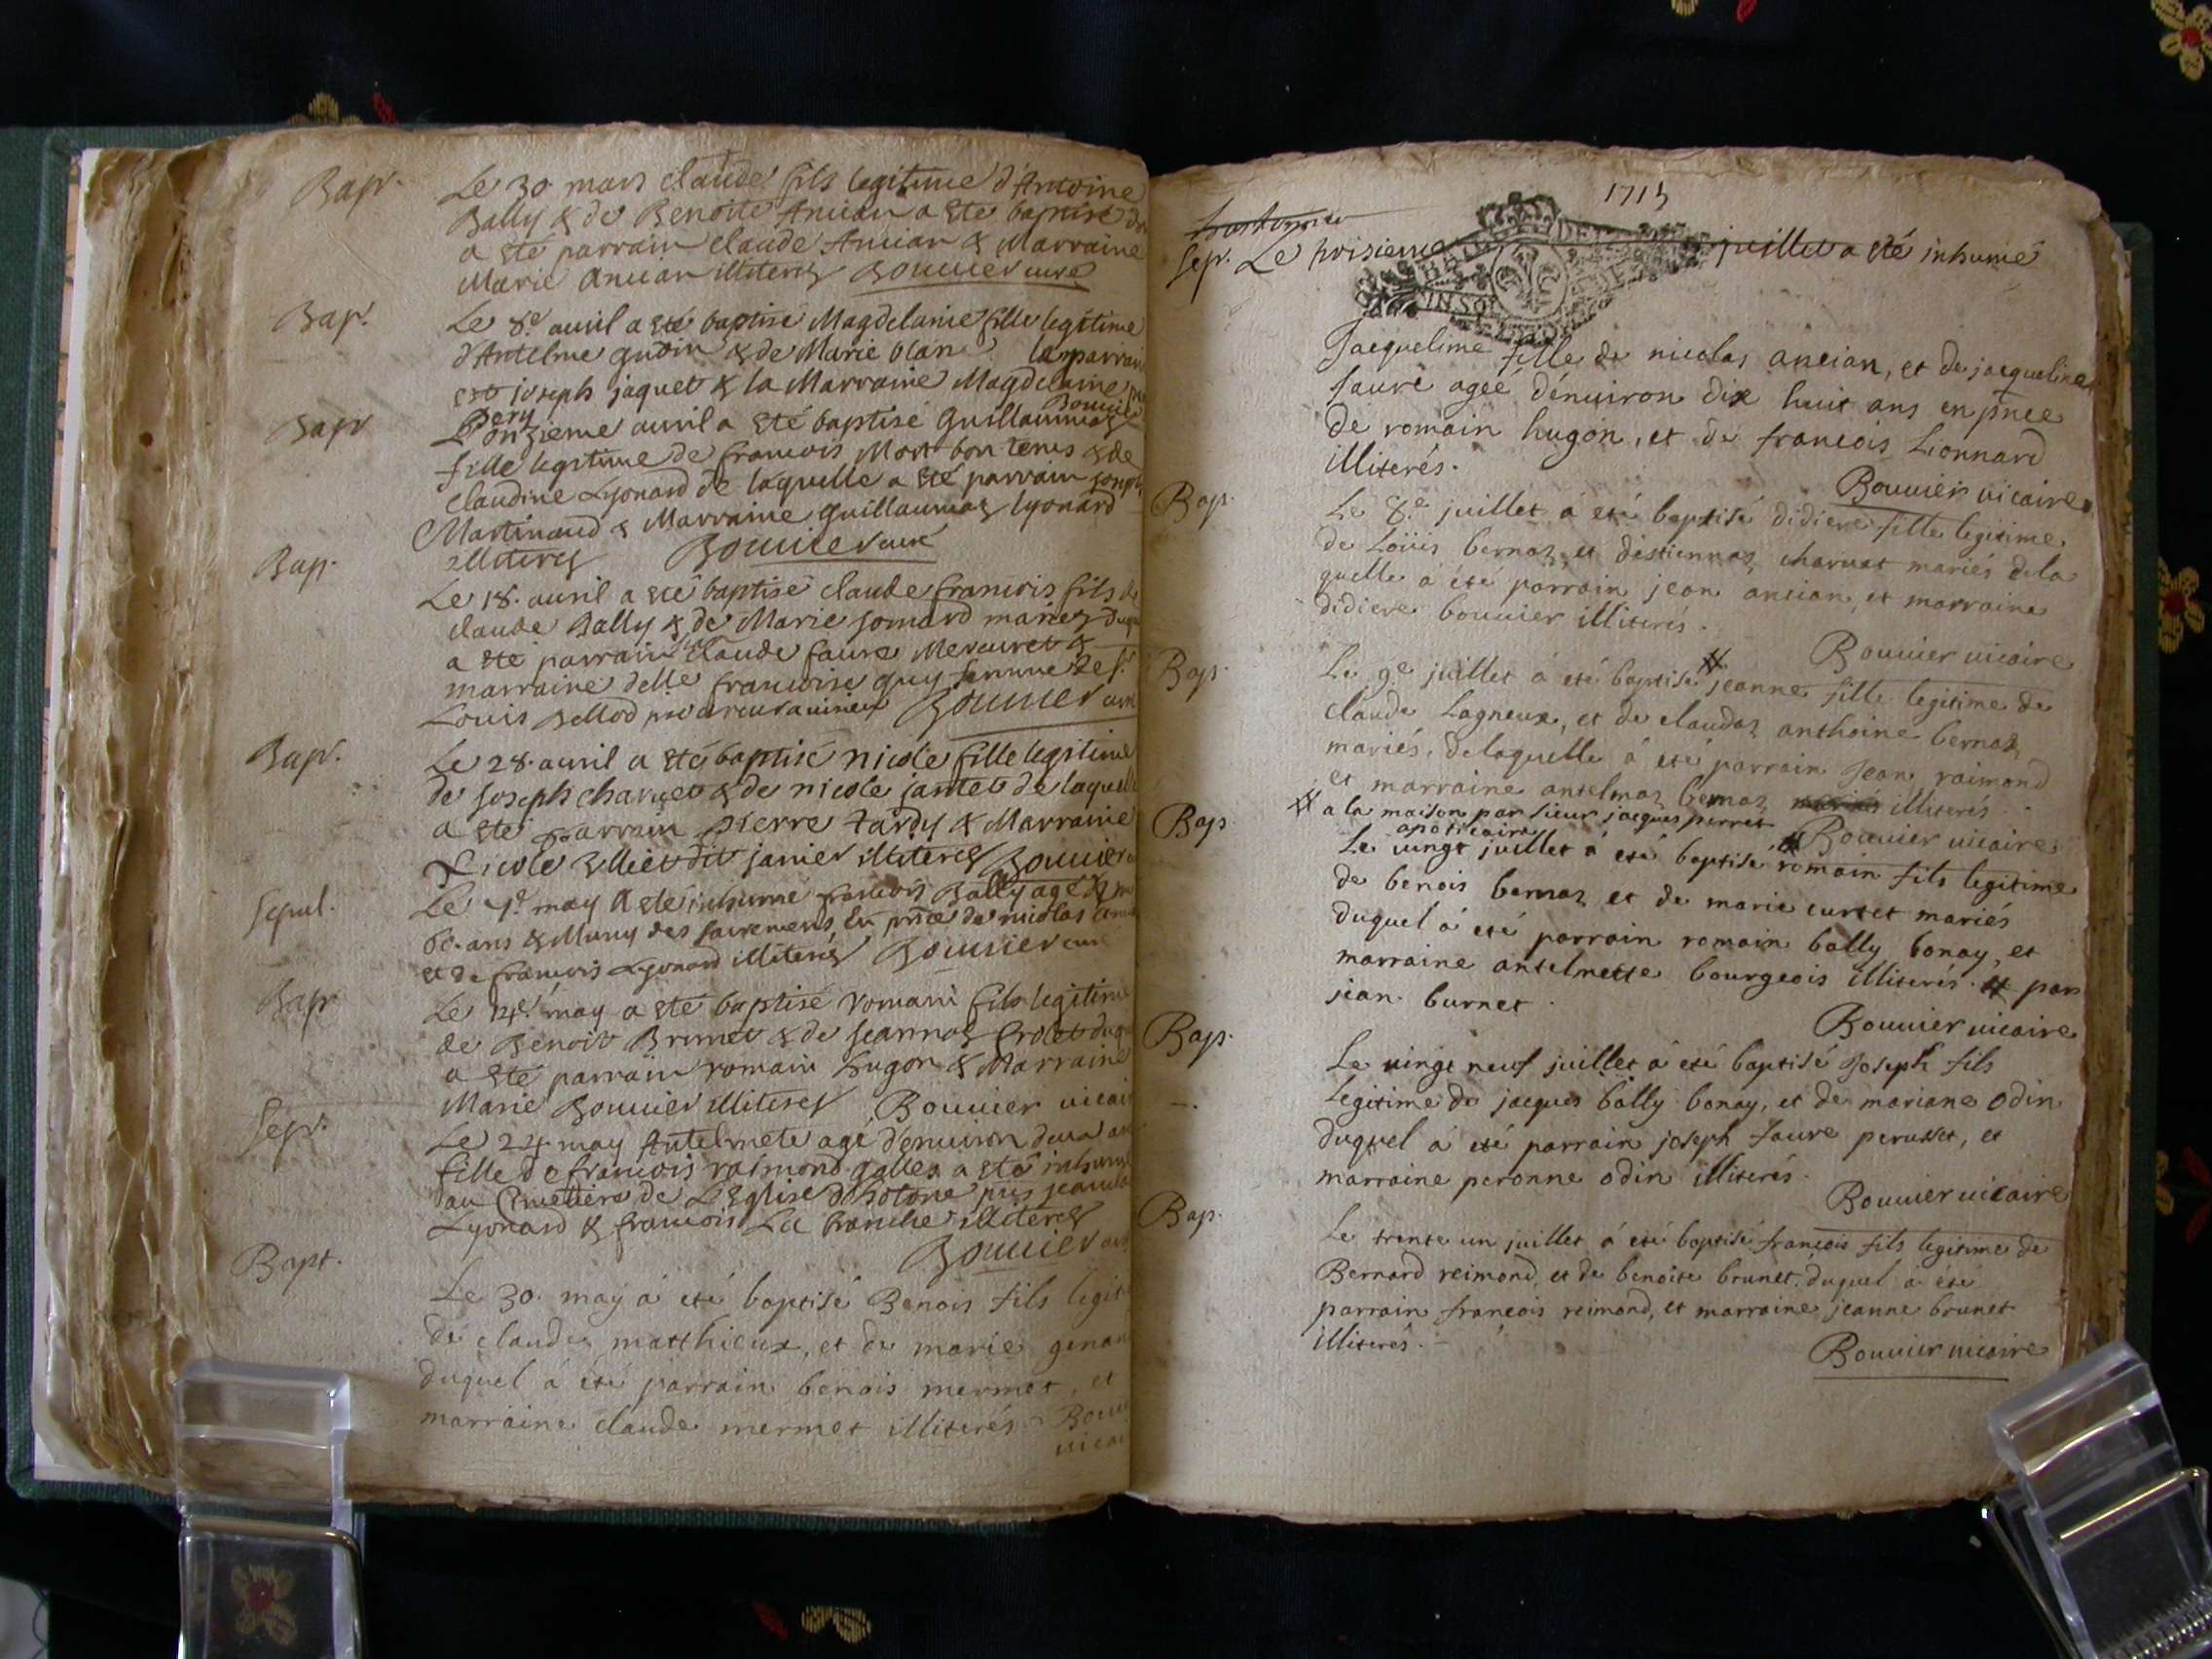 Bap. Le 30 mars claude fils legitime d'Antoine
Bally & de Benoite Ancian a eté baptisé
a eté parrain claude Ancian & Marraine
Marie Ancian illiterés Bouuier curé
Bap. Le 8e auril a eté baptisé Magdelaine fille legitime
d'Antelme gudin & de Marie blanc le parrain
est joseph jaquet & la Marraine Magdelaine
Pery Bouuier
Bapt Le onzieme auril a eté baptisé Guillaumaz
fille legitime de francois Mort bon tems & de
claudine Lyonard de laquelle a eté parrain joseph
Martinand & Marraine guillaumaz lyonard
illiterés Bouuier curé
Bap. Le 18. auril a eté baptisé claude francois fils de
claude Bally & de Marie jomard mariez
a eté parrain claude faure Mercuret &
marraine delle francoise guy femme de sr
Louis Bellod Bouuier curé
Bap. Le 28. auril a eté baptisé nicole fille legitime
de joseph charuet & de nicole jantet de laquelle
a eté parrain pierre tardy & Marraine
Nicole dit janier illiterés Bouuier
Sepul. Le may a eté inhumé francois Bally agé
60. ans & Muny des sacremens En pnce de nicolas
et de francois Lyonard illiterés Bouuier curé
Bap Le may a eté baptisé romain fils legitime
de Benoit Brunet & de jeannaz
a eté parrain romain hugon & Marraine
Marie Bouuier illiterés Bouuier vicaire
Sep. Le 24 may Antelmete agé d'enuiron deux ans
fille de francois raimond gallex a eté inhumé
au Cimettiere de L'Eglise d'hotone pns
Lyonard & francois La branche illiterés
Bouuier curé
Bapt. Le 30. may á eté baptisé Benois fils legit
de claude matthieux, et de marie
duquel á été parrain benois mermet, et
marraine claude mermet illiterés Bouu
vicai
1715
Sep. Le troisieme juillet a eté inhumé
Jacqueline fille de nicolas ancian, et de jacqueline
faure ageé d'enuiron dix huit ans en pnce
de romain hugon, et de francois Lionnard
illiterés.
Bouuier vicaire
Bap. Le 8e juillet á eté baptisé didiere fille legitime
de Loüis bernaz, et d'estiennaz charuet mariés dela
quelle á été parrain jean ancian, et marraine
didiere bouuier illiterés.
Bouuier vicaire
Bap. Le 9e juillet á eté baptisé # jeanne fille legitime de
claude Lagneux, et de claudaz anthoine bernaz
mariés, delaquelle á eté parrain Jean raimond
et marraine antelmaz bernaz illiterés
# a la maison par sieur jacques perret
apoticaire Bouuier vicaire
Bap. Le vingt juillet á eté baptisé # romain fils legitime
de benois bernaz et de marie curtet mariés
duquel á eté parrain romain bally bonay, et
marraine antelmette bourgeois illiterés. # par
jean burnet.
Bouuier vicaire
Bap. Le vingt neuf juillet á eté baptisé Joseph fils
legitime de jacques bally bonay, et de mariane odin
duquel á eté parrain joseph faure perusset, et
marraine peronne odin illiterés.
Bouuier vicaire
Bap. Le trente un juillet á eté baptisé francois fils legitime de
Bernard reimond, et de benoite brunet. duquel á été
parrain francois reimond, et marraine jeanne brunet
illiterés.
Bouuier vicaire